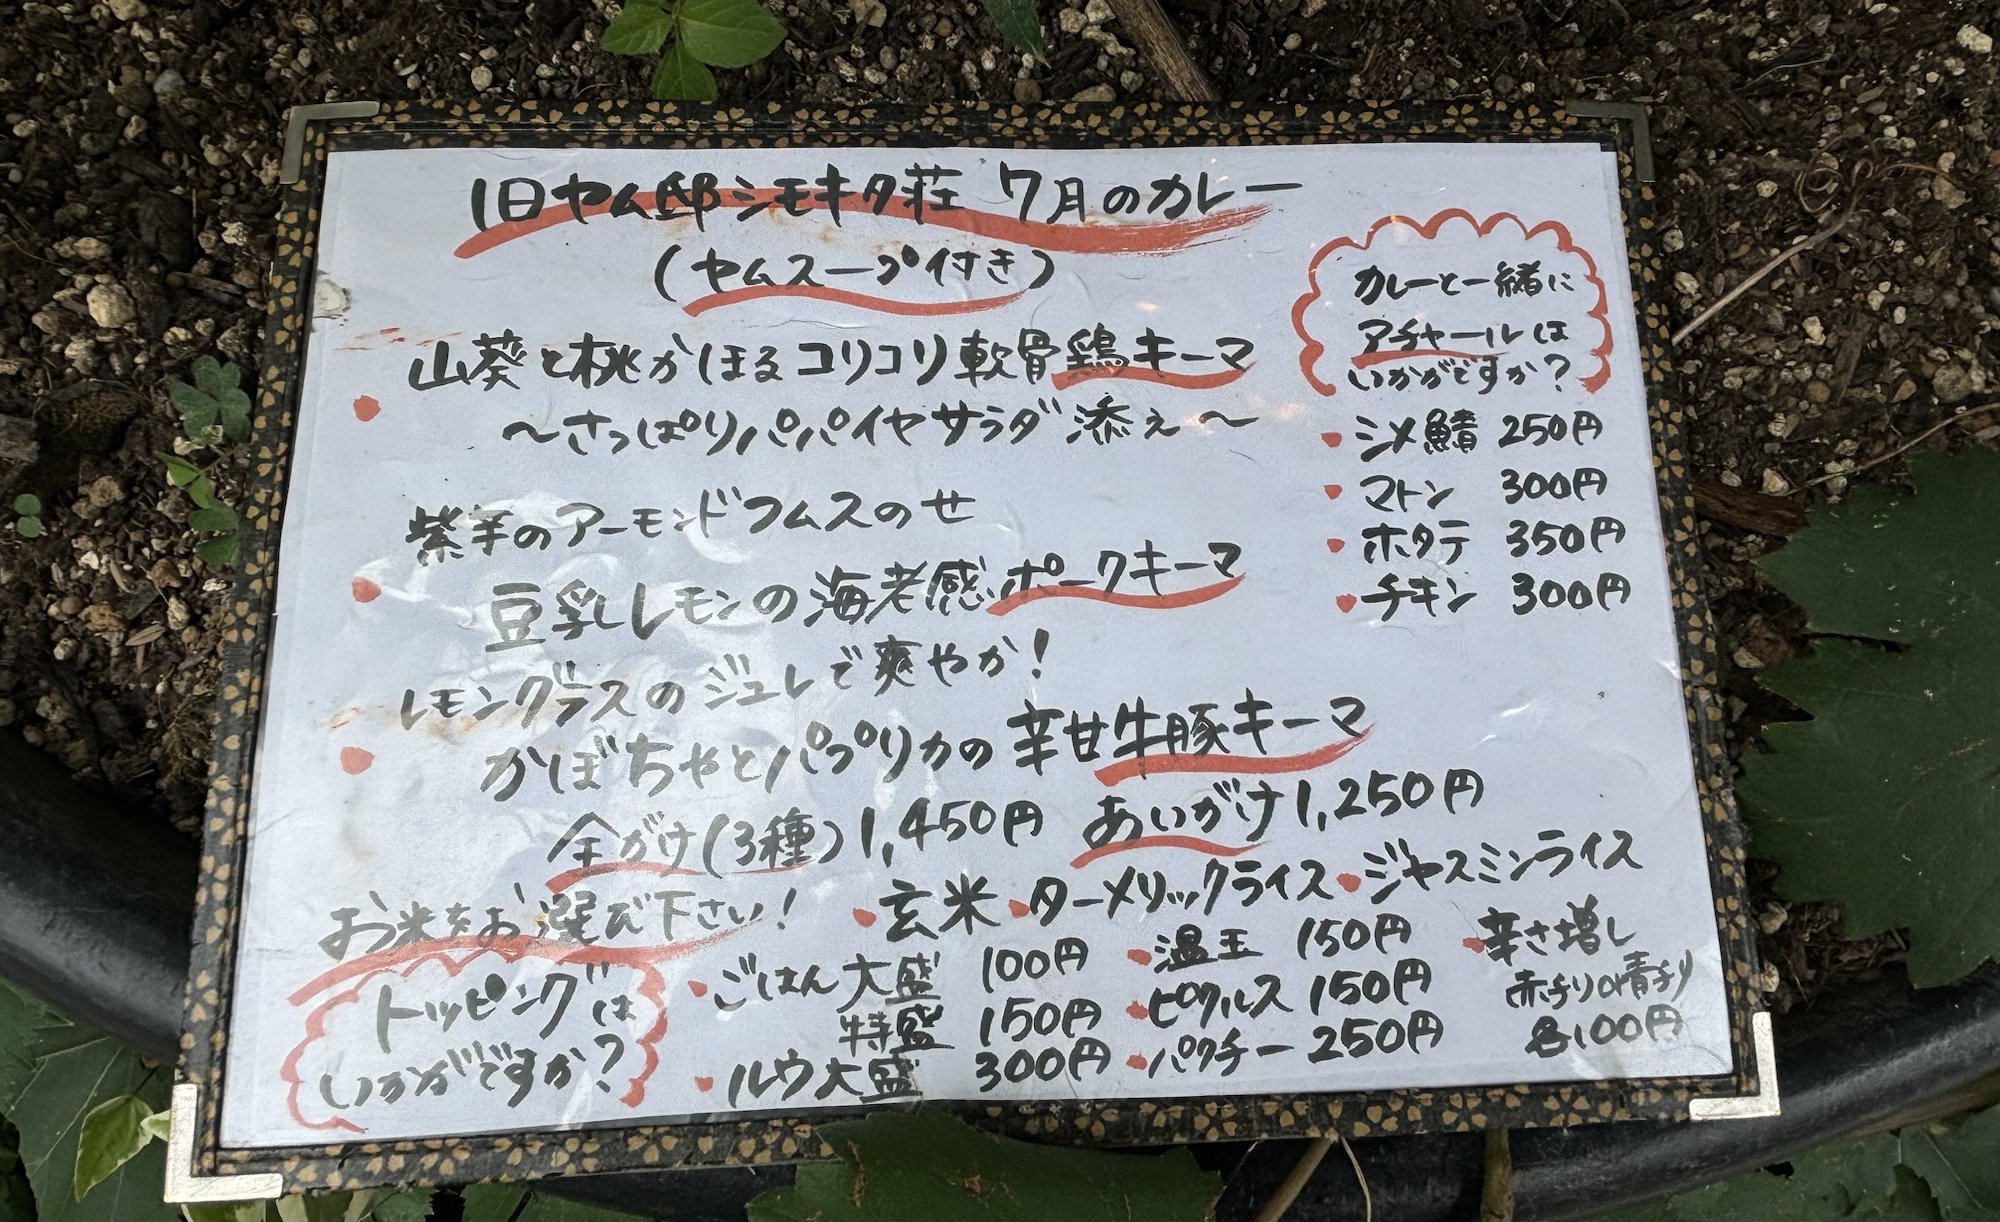 旧ヤム邸シモキタ荘 7月のカレー
(ヤムスープ付き)
山葵と桃かほるコリコリ軟骨鶏キーマ
〜さっぱりパパイヤサラダ添え〜
紫芋のアーモンドフムスのせ
豆乳レモンの海老感ポークキーマ
レモングラスのジュレで爽やか!
かぼちゃとパプリカの辛甘牛豚キーマ
全がけ(3種)1,450円 あいがけ1,250円
カレーと一緒に
アチャールは
いかがですか?
・シメ鯖 250円
・マトン 300円
・ホタテ 350円
・チキン 300円
お米をお選び下さい! ・玄米・ターメリックライス・ジャスミンライス
トッピングは
いかがですか?
・ごはん大盛 100円
特盛 150円
・ルウ大盛 300円
・温玉 150円
・ピクルス 150円
・パクチー 250円
・辛さ増し
(赤チリor青チリ)
各100円